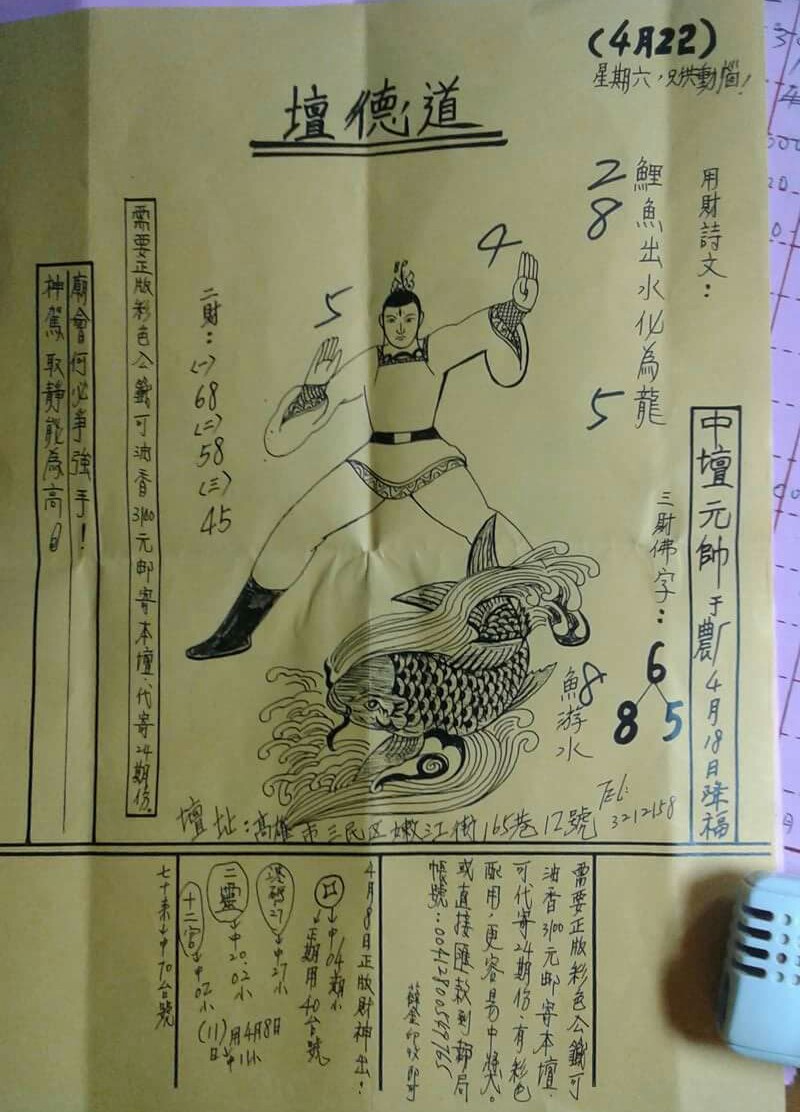 (4月22)
星期六，只供動腦！
道德壇
用財詩文：
鯉魚出水化為龍
2
8
5
中壇元帥于農厂4月18日降福
三財佛字：
6
8 5
4
5
8
魚游水
二財：
(一)
68
(二)
58
(三)
45
需要正版彩色公籤可油香3100元邮寄本壇．代寄24期份．
廟會何必爭強手！
神駕取靜能為高日
壇址：高雄市三民区嫩江街165巷12號
Tel:
3212158
需要正版彩色公籤可
油香3100元邮寄本壇．
可代寄24期份．有彩色
配用，更容易中獎。
或直接匯款到郵局
帳號：00412800549765
4月8日正版財神出！
口→中04期小
→正期用40台號
27→中27小
二靈→中20.02小
十二宮→中02小
(11)月4月8日
七十来→中70台號